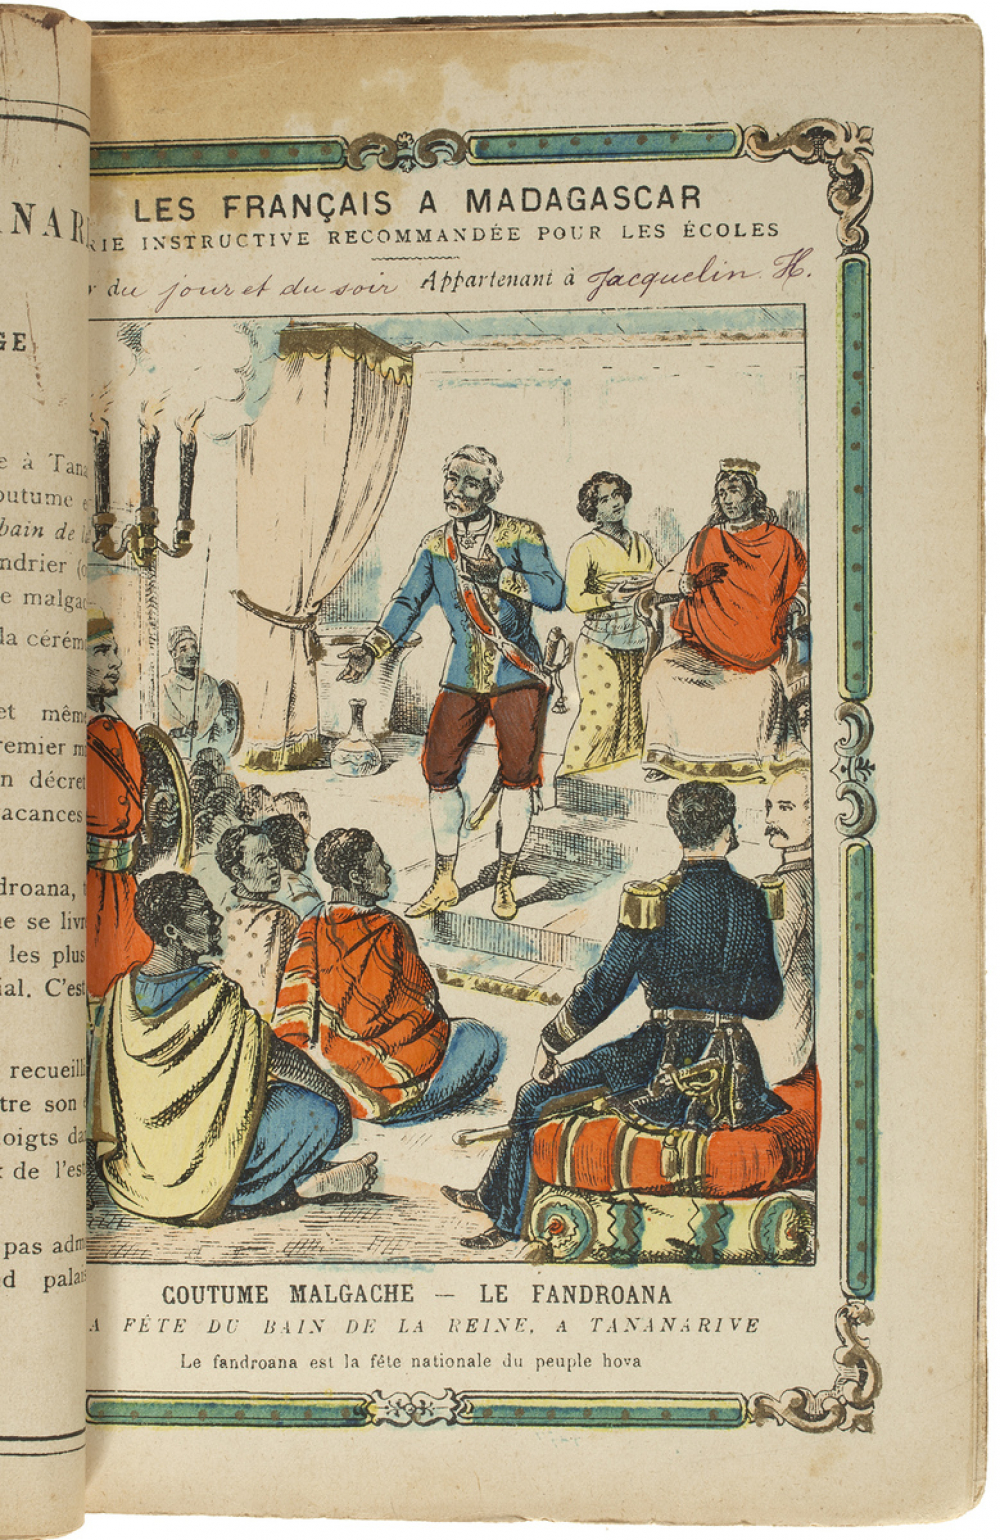 NAR
GE
e à Tana
outume e
bain de l
ndrier (
e malga
la cérém
et mêm
remier m
n décret
acances
droana,
ne se livr
les plus
ial. C'es
recueill
tre son
loigts da
x de l'es
pas adm
d palais
LES FRANÇAIS A MADAGASCAR
RIE INSTRUCTIVE RECOMMANDÉE POUR LES ÉCOLES
r du jour et du soir Appartenant à Jacquelin H.
COUTUME MALGACHE — LE FANDROANA
A FÊTE DU BAIN DE LA REINE, A TANANARIVE
Le fandroana est la fête nationale du peuple hova